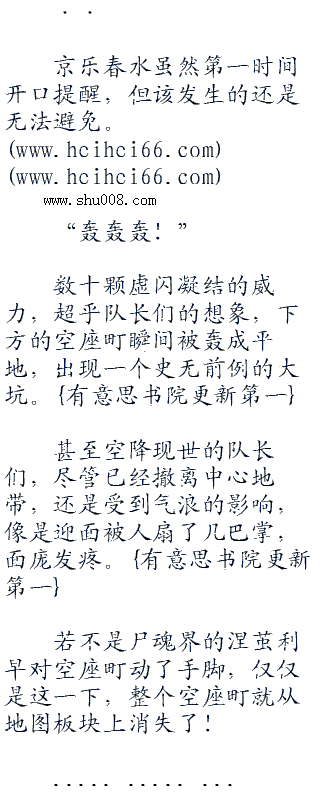 . .
京乐春水虽然第一时间
开口提醒，但该发生的还是
无法避免。
(www.hcihci66.com)
(www.hcihci66.com)
www.shu008.com
“轰轰轰！”
数十颗虚闪凝结的威
力，超乎队长们的想象，下
方的空座町瞬间被轰成平
地，出现一个史无前例的大
坑。{有意思书院更新第一}
甚至空降现世的队长
们，尽管已经撤离中心地
带，还是受到气浪的影响，
像是迎面被人扇了几巴掌，
面庞发疼。{有意思书院更新
第一}
若不是尸魂界的涅茧利
早对空座町动了手脚，仅仅
是这一下，整个空座町就从
地图板块上消失了！
..... ..... ...